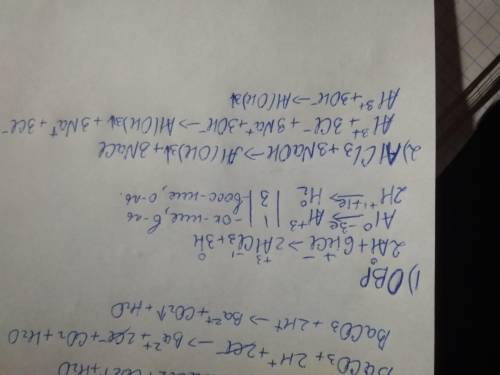 BaCO3 + 2H⁺ + 2Cl⁻ → Ba²⁺ + 2Cl⁻ + CO2 + H2O
BaCO3 + 2H⁺ → Ba²⁺ + CO2↑ + H2O
1) ОВР
2Al⁰ + 6H⁺Cl⁻ → 2Al⁺³Cl⁻¹3 + 3H⁰
Al⁰ -3e → Al⁺³ | 1 | -ок-ние, в-ль
2H⁺ +1e → H2⁰ | 3 | -восс-ние, о-ль.
2) AlCl3 + 3NaOH → Al(OH)3↓ + 3NaCl
Al³⁺ + 3Cl⁻ + 3Na⁺ + 3OH⁻ → Al(OH)3↓ + 3Na⁺ + 3Cl⁻
Al³⁺ + 3OH⁻ → Al(OH)3↓